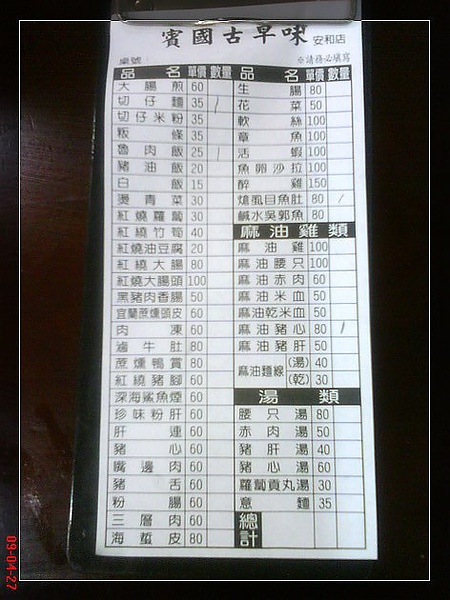 賓國古早味 安和店
桌號 ※請務必填寫
品名 單價 數量
大腸煎 60
切仔麵 35 /
切仔米粉 35
粄條 35
魯肉飯 25 /
豬油飯 20
白飯 15
燙青菜 30
紅燒蘿蔔 30
紅燒竹筍 40
紅燒油豆腐 20
紅燒大腸 80
紅燒大腸頭 100
黑豬肉香腸 50
宜蘭蔗燻頭皮 60
肉凍 60
滷牛肚 80
蔗燻鴨賞 80
紅燒豬腳 60
深海鯊魚煙 60
珍味粉肝 60
肝連 60
豬心 60
嘴邊肉 60
豬舌 60
粉腸 60
三層肉 60
海蜇皮 80
品名 單價 數量
生腸 80
花菜 50
軟絲 100
章魚 100
活蝦 100
魚卵沙拉 100
醉雞 150
熗虱目魚肚 80 /
鹹水吳郭魚 80
麻油雞類
麻油雞 100
麻油腰只 100
麻油赤肉 60
麻油米血 50
麻油乾米血 50
麻油豬心 80 /
麻油豬肝 50
麻油麵線 (湯) 40
(乾) 30
湯類
腰只湯 80
赤肉湯 50
豬肝湯 40
豬心湯 60
蘿蔔貢丸湯 30
意麵 35
總計
09-04-27